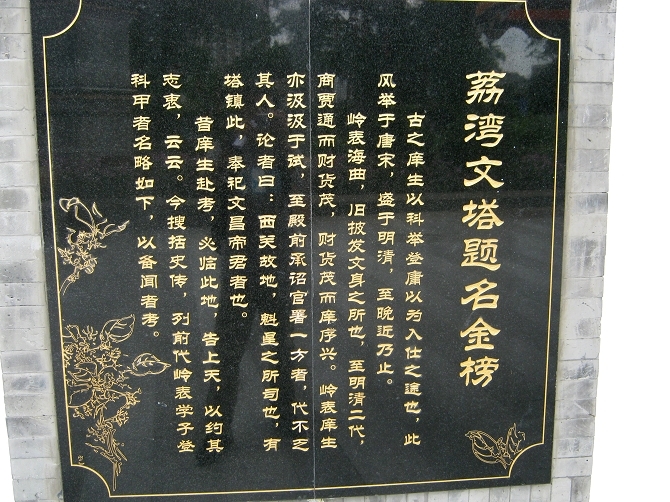 荔湾文塔题名金榜
古之庠生以科举登庸以为入仕之途也，此
风举于唐宋，盛于明清，至晚近乃止。
岭表海曲，旧披发文身之所也，至明清二代，
商贾通而财货茂，财货茂而庠序兴。岭表庠生
亦汲汲于试，至殿前承诏官署一方者，代不乏
其人。论者曰：西关故地，魁星之所司也，有
塔镇此，奉祀文昌帝君者也。
昔庠生赴考，必临此地，告上天，以约其
志衷，云云。今搜括史传，列前代岭表学子登
科甲者名略如下，以备闻者考。